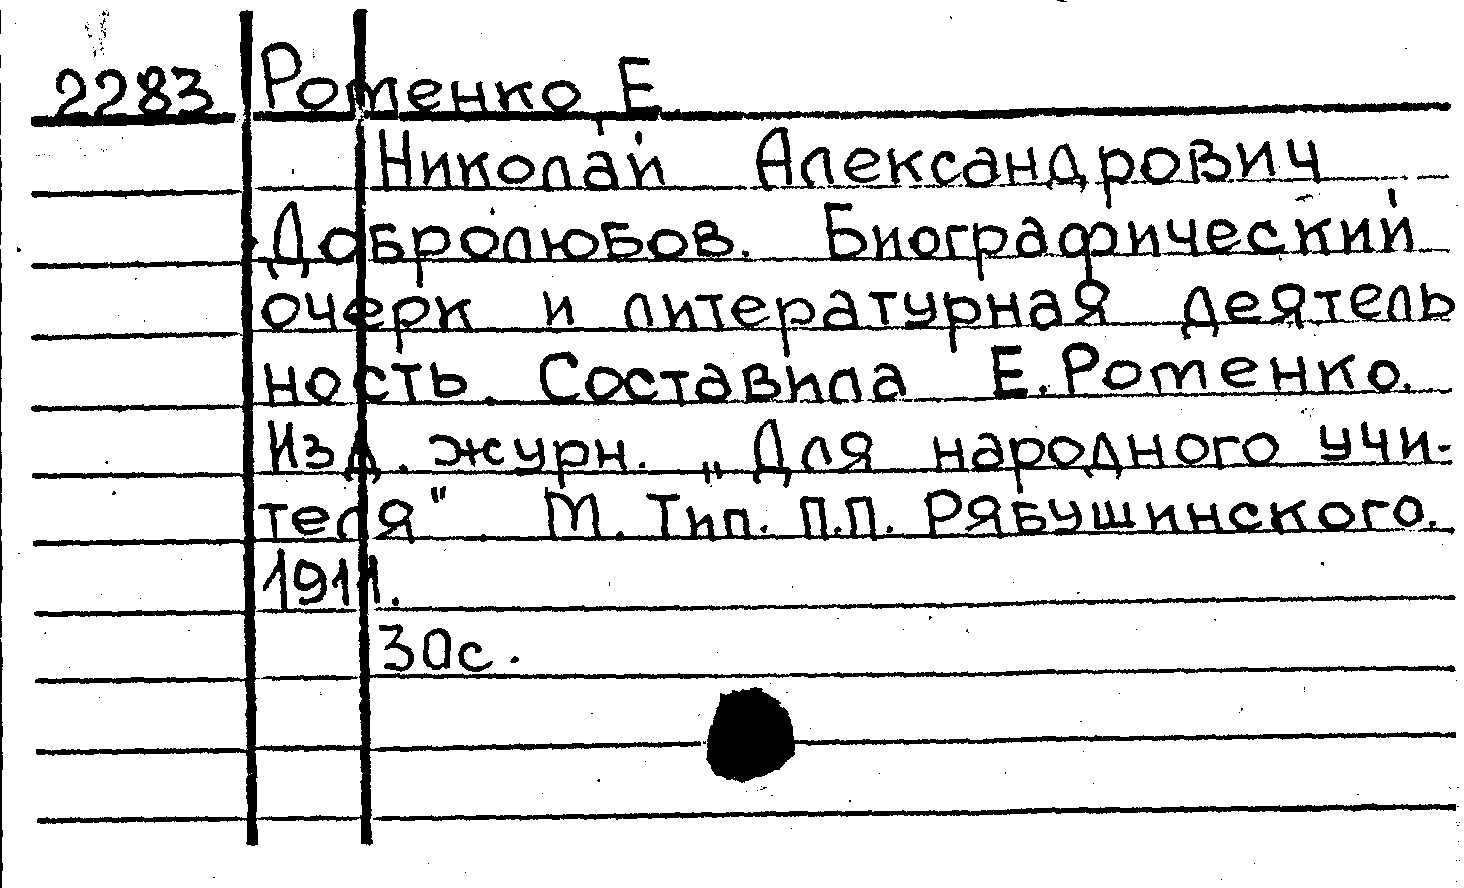 2283 Роменко Е.
Николай Александрович
Добролюбов. Биографический
очерк и литературная деятель
ность. Составила Е. Ротенко.
Изд. журн. „Для народного учи-
теля". М. Тип. П.П. Рябушинского.
1911.
30с.